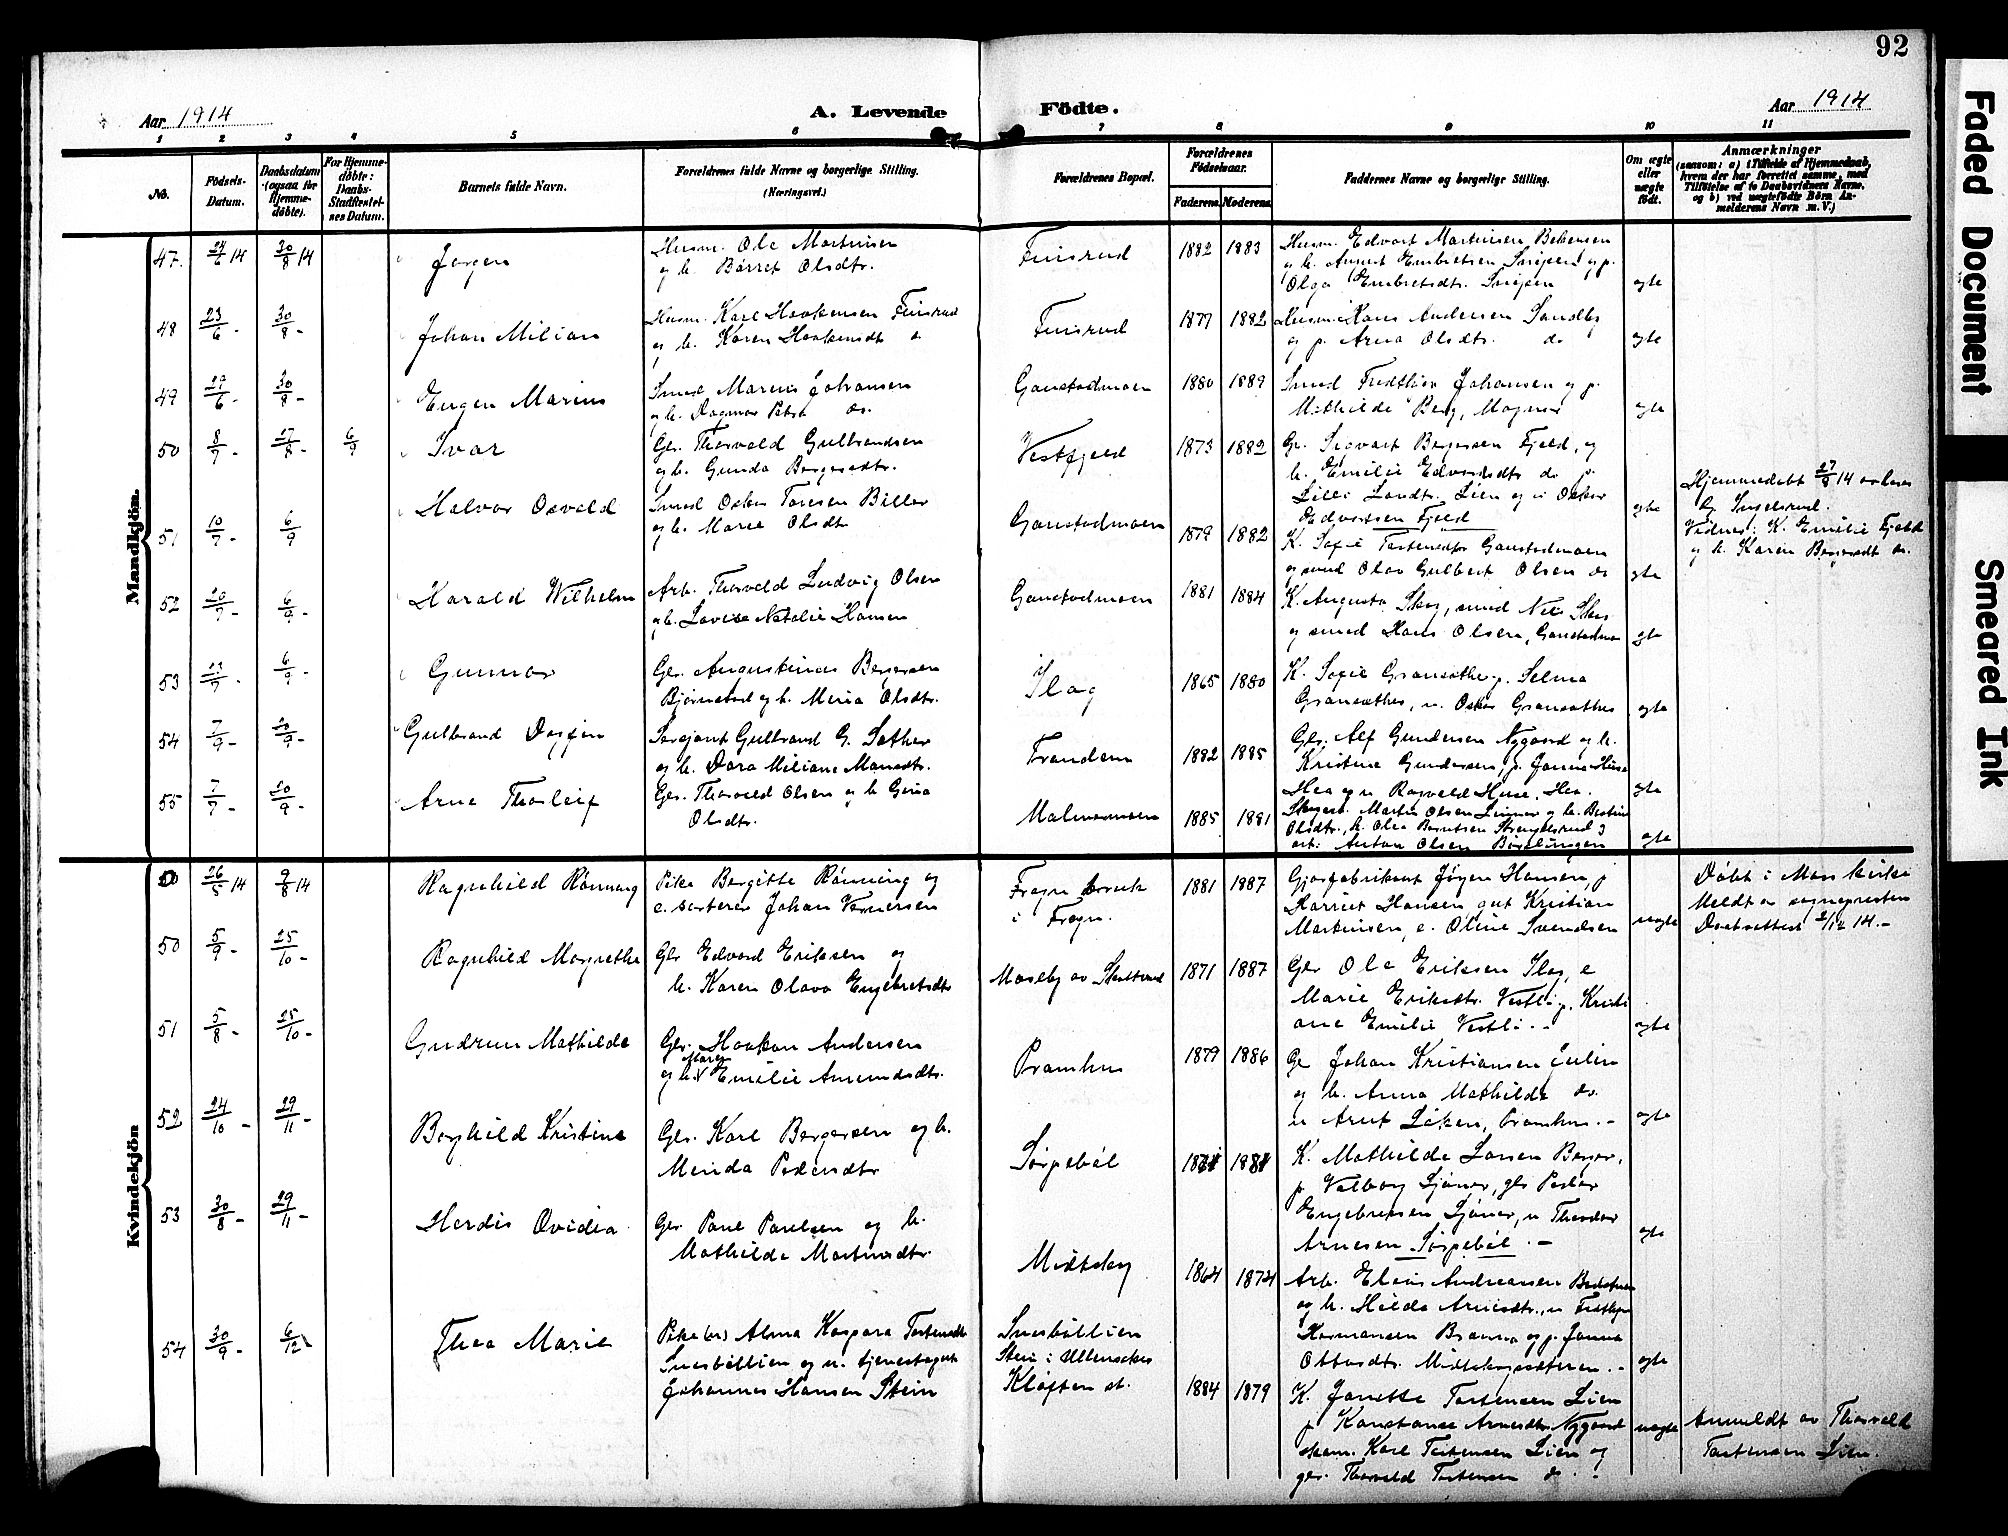 92
Aar 1914
A. Levende
Födte.
Aar 1914
1 2 3 4 5 6 7 8 9 10 11
No.
Födsels-
Datum.
Daabsdatum
(ogsaa for
Hjemme-
døbte).
For Hjemme-
døbte:
Daabs-
Stadfæstel-
ses Datum.
Barnets fulde Navn.
Forældrenes fulde Navne og borgerlige Stilling.
(Næringsvei.)
Forældrenes Bopæl.
Forældrenes
Födselsaar.
Faderens. Moderens.
Faddernes Navne og borgerlige Stilling.
Om ægte
eller
uægte
født.
Anmærkninger
(saasom: a) i Tilfælde af Hjemmedaab,
hvem der har forrettet samme, med
Tilføielse af to Daabsvidners Navne,
og b) ved uægtefødte Børn An-
melderens Navn m. V.)
Mandkjön.
47. 24/6 14 30/8 14 Jørgen
Husm. Ole Martinsen
og h. Børret Olsdtr.
Finsrud 1882 1883
Husm. Edvart Martinsen
Olga Embretsdtr. Snipen ægte
48 23/6 - 30/8 - Johan Milian
Husm. Karl Haakensen Finsrud
og h. Karen Haakensdt
Finsrud 1877 1882
Husm. Hans Andersen Sandby
og p. Arna Olsdtr. do ægte
49 29/6 - 30/8 - Eugen Marius
Smed Marius Johansen
og h. Dagmar
Ganstadmoen 1880 1889
Smed Fridthjov Johansen og p.
Mathilde Berg, Magnor ægte
50 8/7 - 27/8 - 6/9 Ivar
Gr. Thorvald Gulbrandsen
og h. Gunda Borgersdtr.
Vestfjeld 1873 1882
Gr. Sigvart Borgersen Fjeld, og
h. Emilie Edvardsdtr do p.
Lilli Lundtr. Lien og u Oskar
Edvardsen Fjeld ægte
Hjemmedøbt 27/8 14 av lærer
G. Ingelsrud.
Vidner: K. Emilie Fjeld
og h. Karen Borgersdt do.
51 10/7 - 6/9 Halvor Osvald
Smed Oskar Toresen Biller
og h. Marie Olsdt
Ganstadmoen 1879 1882
K. Sofie Torstensdtr Ganstadmoen
og smed Olav Gulbert Olsen do ægte
52 20/7 - 6/9 - Harald Wilhelm
Arb. Thorvald Ludvig Olsen
og h. Lovise Natalie Hansen
Ganstadmoen 1881 1884
K. Augusta Skog, smed Nils Skog
og smed Hans Olsen, Ganstadmo ægte
53 6/9 - Gunnar
Gr. Augustinus Borgersen
Bjørnstad og h. Mina Olsdtr.
Slag 1865 1880
K. Sofie Gransæther, p. Selma
Gransæther, u. Oskar Gransæther ægte
54 7/9 - 20/9 - Gulbrand Dagfin
Sersjant Gulbrand G. Sæther
og h. Dora Miliane Mansdtr.
Trandem 1882 1885
Gr. Alf Gundersen Nygaard og h.
Kristine Gundersen, p. Janna Huse
Hea og u Ragvald Huse, Hea. ægte
55 7/7 - 20/9 - Arne Thorleif
Gr. Thorvald Olsen og h Gina
Olsdtr.
Malmermoen 1885 1881
Skogarb. Martin Olsen Linner og h.
Olsdtr, h. Olea Berntsen
arb. Anton Olsen ægte
Kvindekjön
26/5 14 9/8 14 Ragnhild Rønning
Pike Bergitte Rønning og
e. sorterer Johan Vernersen
Frogn bruk
i Frogn. 1881 1887
Gjørfabrikant Jørgen Hansen, p
Harriet Hansen gut Kristian
Martinsen, e. Oline Svendsen uægte
Døbt i Moss kirke
Meldt av sogneprest
2/12 14. -
50 5/9 - 25/10 - Ragnhild Margrethe
Gr Edvard Eriksen og
h. Karen Olava Engebretsdtr
Moseby av Skotterud 1871 1887
Gr Ole Eriksen Slag, e
Marie Eriksdtr. Vestli p. Kristi
ane Emilie Vestli. - ægte
51 5/8 - 25/10 - Gudrun Mathilde
Gr. Haakon Andersen
og h. Maren Emilie Amundsdtr.
Pramhus 1879 1886
Gr Johan Kristiansen Eulin
og h. Anna Mathilde do.
u Arnt Løken, Pramhus. - ægte
52 24/10 - 29/11 - Borghild Kristine
Gr. Karl Borgersen og h.
Minda Pedersdtr
Sørpebøl
K. Mathilde Larsen Berger,
p. Valborg Sjøner, gr Peder
Engebretsen Sjøner, u Theodor
Arnesen Sørpebøl. - ægte
53 30/8 - 29/11 - Herdis Ovidia
Gr. Paul Paulsen og h.
Mathilde Martinsdtr.
Midtskog 1864 1874
Arb. Elvin Andreassen
og h. Hilda Arnesdtr, u Fridthjov
Hermansen Brænna og p. Janna
Ottarsdtr. Midtskogsæteren. - ægte
54 30/9 - 6/12 Thea Marie
Pike Alma Kaspara Torstensdtr
Snesbøllien og u. tjenestegut
Johannes Hansen Stein
Snesbøllien
Stein i Ullensaker
Kløften st. 1884 1879
K. Janette Torstensen Lien
p Konstanse Arnesdtr. Nygaard
Karl Torstensen Lien og
gr. Thorvald Torstensen do. - uægte
Anmeldt av Thorvald
Torstensen Lien.
Faded Document
Smeared Ink